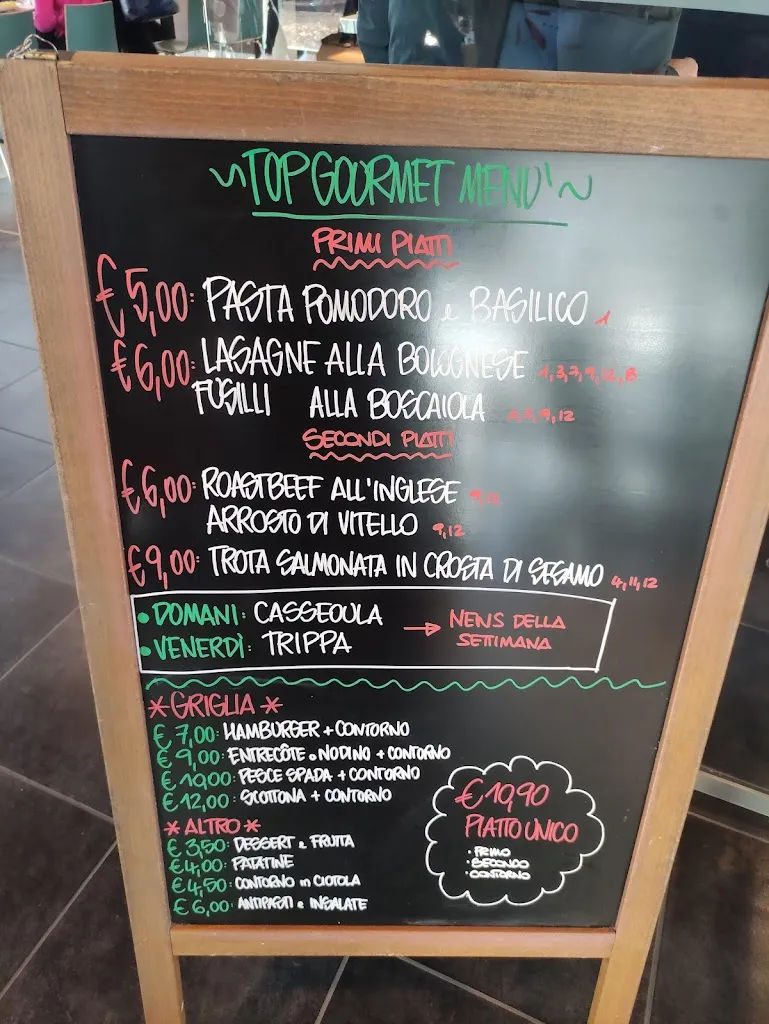 TOP GOURMET MENU'
PRIMI PIATTI
€5,00: PASTA POMODORO e BASILICO 1
€6,00: LASAGNE ALLA BOLOGNESE 1,3,7,9,12,8
FUSILLI ALLA BOSCAIOLA 9,12
SECONDI PIATTI
€6,00: ROASTBEEF ALL'INGLESE 9,12
ARROSTO DI VITELLO 9,12
€9,00: TROTA SALMONATA IN CROSTA DI SESAMO 4,11,12
• DOMANI: CASSEOULA → NEWS DELLA
• VENERDÌ: TRIPPA SETTIMANA
* GRIGLIA *
€ 7,00: HAMBURGER + CONTORNO
€ 9,00: ENTRECÔTE o NODINO + CONTORNO
€ 10,00: PESCE SPADA + CONTORNO
€ 12,00: SCOTTONA + CONTORNO
* ALTRO *
€ 3,50: DESSERT e FRUTTA
€ 4,00: PATATINE
€ 4,50: CONTORNO in CIOTOLA
€ 6,00: ANTIPASTI e INSALATE
€ 10,90
PIATTO UNICO
• PRIMO
• SECONDO
• CONTORNO